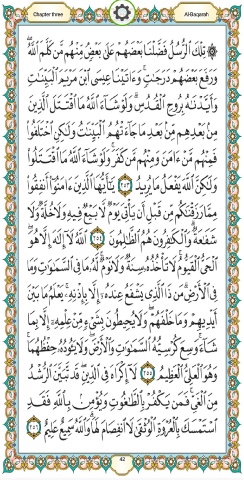 Chapter three
Al-Baqarah
۞ تِلْكَ ٱلرُّسُلُ فَضَّلْنَا بَعْضَهُمْ عَلَىٰ بَعْضٍ مِّنْهُم مَّن كَلَّمَ ٱللَّهُ
وَرَفَعَ بَعْضَهُمْ دَرَجَٰتٍ وَءَاتَيْنَا عِيسَى ٱبْنَ مَرْيَمَ ٱلْبَيِّنَٰتِ
وَأَيَّدْنَٰهُ بِرُوحِ ٱلْقُدُسِ وَلَوْ شَآءَ ٱللَّهُ مَا ٱقْتَتَلَ ٱلَّذِينَ
مِنۢ بَعْدِهِم مِّنۢ بَعْدِ مَا جَآءَتْهُمُ ٱلْبَيِّنَٰتُ وَلَٰكِنِ ٱخْتَلَفُوا۟
فَمِنْهُم مَّنْ ءَامَنَ وَمِنْهُم مَّن كَفَرَ وَلَوْ شَآءَ ٱللَّهُ مَا ٱقْتَتَلُوا۟
وَلَٰكِنَّ ٱللَّهَ يَفْعَلُ مَا يُرِيدُ ٢٥٣ يَٰٓأَيُّهَا ٱلَّذِينَ ءَامَنُوٓا۟ أَنفِقُوا۟
مِمَّا رَزَقْنَٰكُم مِّن قَبْلِ أَن يَأْتِىَ يَوْمٌ لَّا بَيْعٌ فِيهِ وَلَا خُلَّةٌ وَلَا
شَفَٰعَةٌ وَٱلْكَٰفِرُونَ هُمُ ٱلظَّٰلِمُونَ ٢٥٤ ٱللَّهُ لَآ إِلَٰهَ إِلَّا هُوَ
ٱلْحَىُّ ٱلْقَيُّومُ لَا تَأْخُذُهُۥ سِنَةٌ وَلَا نَوْمٌ لَّهُۥ مَا فِى ٱلسَّمَٰوَٰتِ وَمَا
فِى ٱلْأَرْضِ مَن ذَا ٱلَّذِى يَشْفَعُ عِندَهُۥٓ إِلَّا بِإِذْنِهِۦ يَعْلَمُ مَا بَيْنَ
أَيْدِيهِمْ وَمَا خَلْفَهُمْ وَلَا يُحِيطُونَ بِشَىْءٍ مِّنْ عِلْمِهِۦٓ إِلَّا بِمَا
شَآءَ وَسِعَ كُرْسِيُّهُ ٱلسَّمَٰوَٰتِ وَٱلْأَرْضَ وَلَا يَـُٔودُهُۥ حِفْظُهُمَا
وَهُوَ ٱلْعَلِىُّ ٱلْعَظِيمُ ٢٥٥ لَآ إِكْرَاهَ فِى ٱلدِّينِ قَد تَّبَيَّنَ ٱلرُّشْدُ
مِنَ ٱلْغَىِّ فَمَن يَكْفُرْ بِٱلطَّٰغُوتِ وَيُؤْمِنۢ بِٱللَّهِ فَقَدِ
ٱسْتَمْسَكَ بِٱلْعُرْوَةِ ٱلْوُثْقَىٰ لَا ٱنفِصَامَ لَهَا وَٱللَّهُ سَمِيعٌ عَلِيمٌ ٢٥٦
42